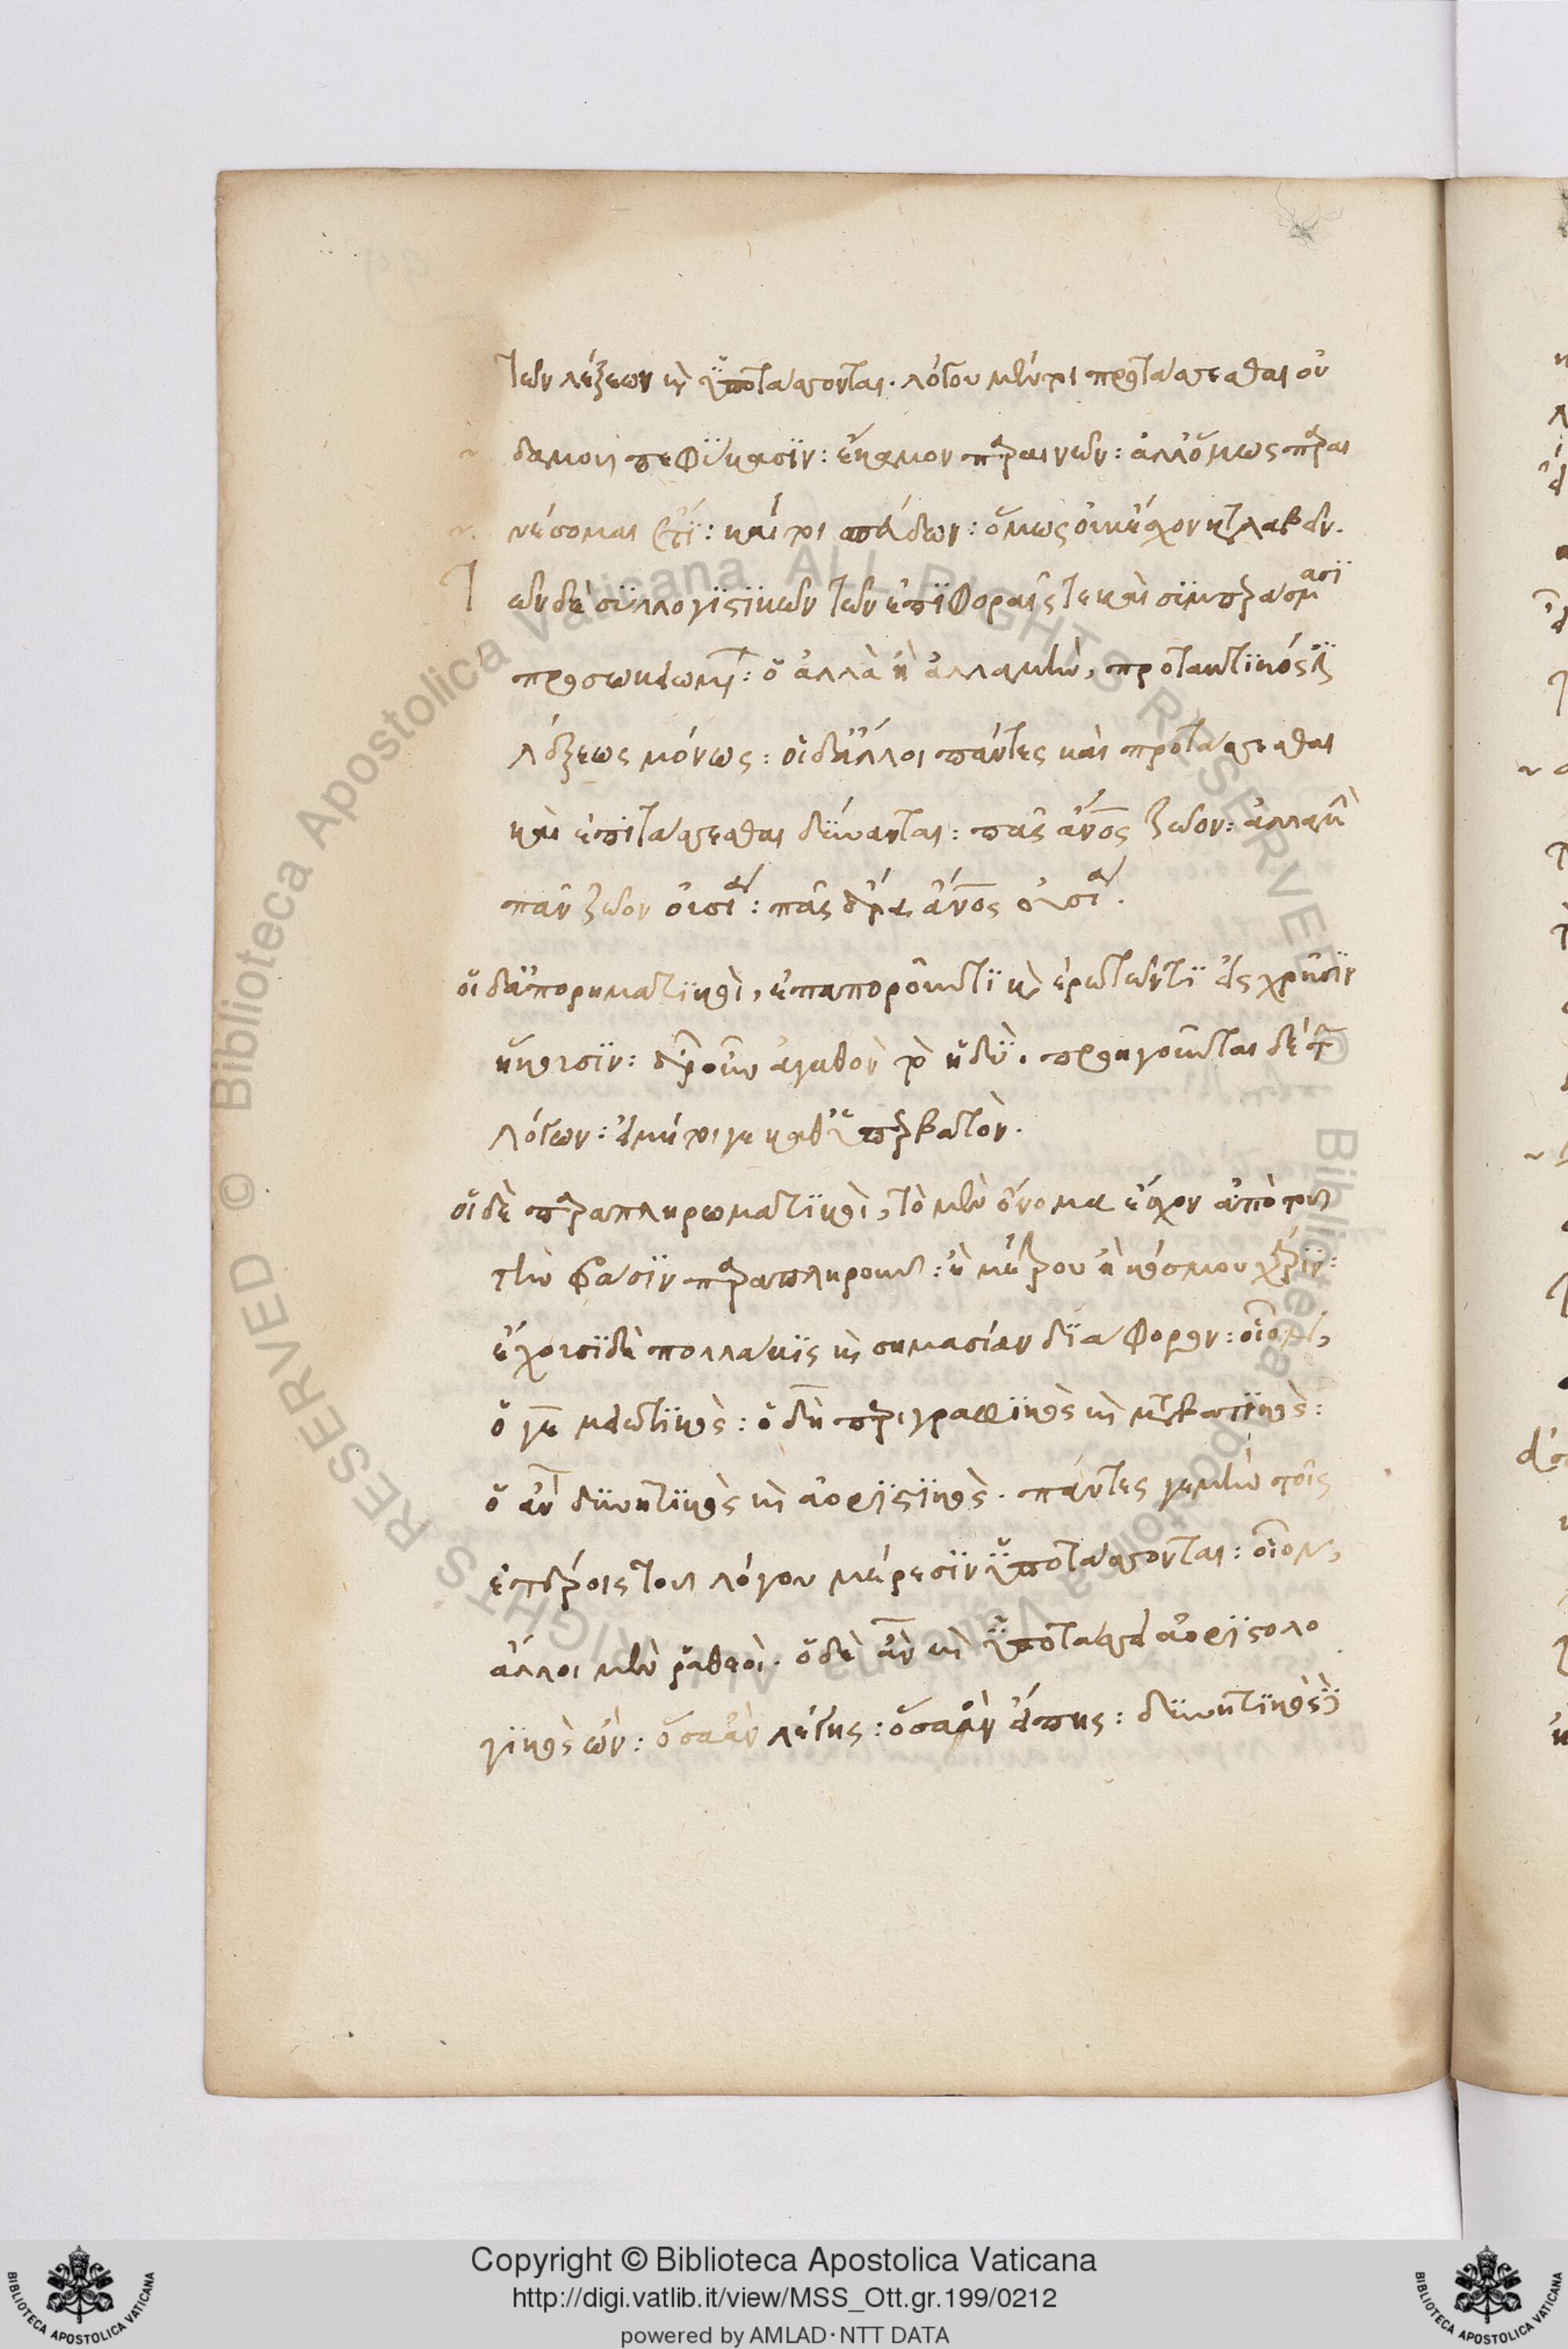 τῶν λέξεων καὶ ὑποτάσσονται. λόγου μέντοι προτάσσεσθαι οὐ
δαμοῦ πεφύκασιν: εὔκαιρον παραινεῖν: ἀλλ' ὅμως παραι
νέσομαί: καίτοι σπεύδων: ὅμως οὐκ ἔχον λαβεῖν.
Τ
ῶν δὲ συλλογιστικῶν τῶν ἐπιφοραῖς τε καὶ συμπεράσμασι
προσωκειωμένων: ὁ ἀλλὰ ἢ ἀλλαμὴν, προτακτικός ἐστι
λέξεως μόνως: οἱ δ' ἄλλοι πάντες καὶ προτάσσεσθαι
καὶ ἐπιτάσσεσθαι δύνανται: πᾶς ἄνος ζῶον: ἀλλὰ μὴν
πᾶν ζῶον οὐσία: πᾶς ἄρα ἄνος οὐσία.
οἱ δ' ἀπορηματικοὶ, ἐπαποροῦντι καὶ ἐρωτῶντι εἰς χρῆσιν
ἥκουσιν: ἆρ' οὖν ἀγαθὸν τὸ ἡδύ. προηγοῦνται δὲ τῶν
λόγων: εἰ μήτοιγε καθ' ὑπερβατὸν.
οἱ δὲ παραπληρωματικοὶ, τὸ μὲν ὄνομα ἔχον ἀπὸ τοῦ
τὴν φάσιν παραπληροῦν: ἢ μέτρου ἢ κόσμου χάριν:
ἔχουσι δὲ πολλάκις καὶ σημασίαν διάφορον: οἷον,
ὁ γε μειωτικὸς: ὁ δὴ περιγραφικὸς καὶ μεταβατικὸς:
ὁ ἂν δυνητικὸς καὶ ἀοριστικὸς. πάντες γε μὴν τοῖς
ἑτέροις τοῦ λόγου μέρεσιν ὑποτάσσονται: οἷον,
ἄλλοι μὲν ῥα θεοὶ. ὁ δὲ ἂν καὶ ὑποτάσσει ἀοριστολο
γικὸς ὢν: ὅσα ἂν λέγῃς: ὅσα ἂν εἴπῃς: δυνητικὸς
Copyright © Biblioteca Apostolica Vaticana
http://digi.vatlib.it/view/MSS_Ott.gr.199/0212
powered by AMLAD·NTT DATA